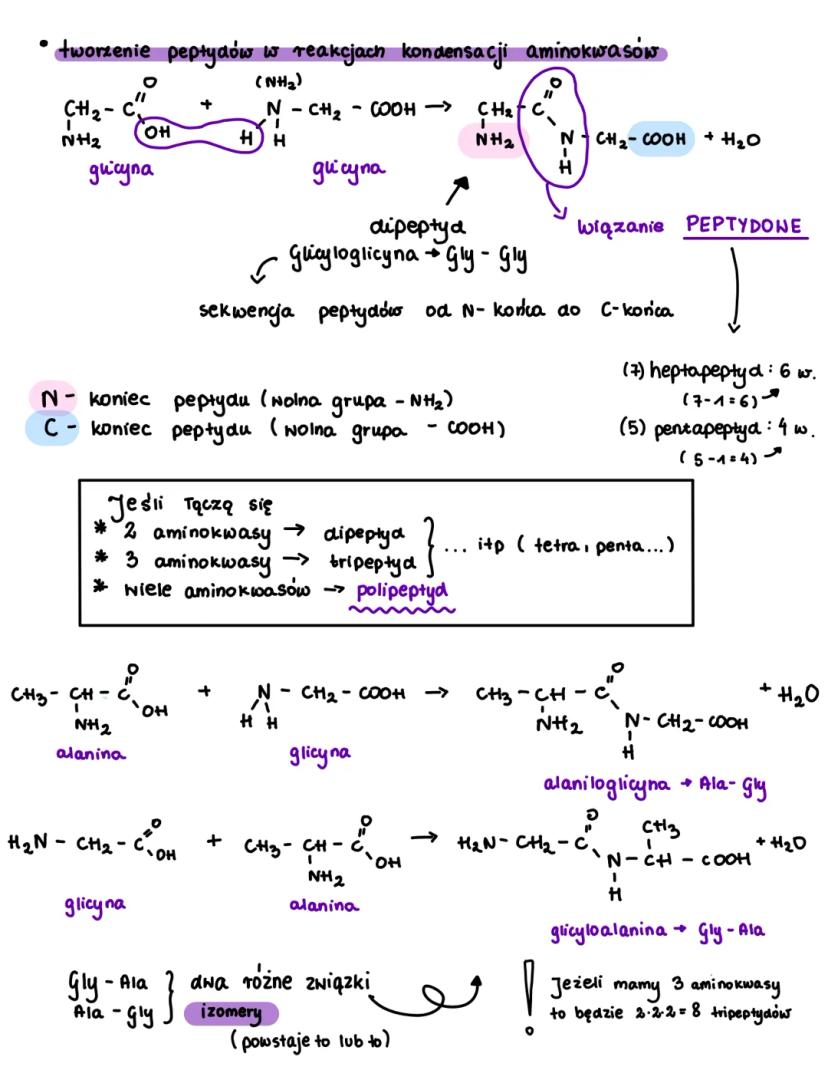 • tworzenie peptydów w reakcjach kondensacji aminokwasów
CH₂ - C(=O)(OH) + (NH₂) N - CH₂ - COOH → CH₂ - C(=O) - N - CH₂ - COOH + H₂O
NH₂ H H NH₂ H
glicyna glicyna
wiązanie PEPTYDOWE
dipeptyd
Glicyloglicyna → Gly - Gly
sekwencja peptydów od N- końca do C-końca
(7) heptapeptyd : 6 w.
(7-1=6)
(5) pentapeptyd : 4 w.
(5-1=4)
N - koniec peptydu (wolna grupa - NH₂)
C - koniec peptydu (wolna grupa - COOH)
Jeśli łączą się
* 2 aminokwasy → dipeptyd
* 3 aminokwasy → tripeptyd } ... itp ( tetra, penta...)
* wiele aminokwasów → polipeptyd
CH₃ - CH - C(=O)(OH) + N - CH₂ - COOH → CH₃ - CH - C(=O) + H₂O
NH₂ H H NH₂ N - CH₂ - COOH
H
alanina glicyna
alaniloglicyna → Ala- Gly
H₂N - CH₂ - C(=O)(OH) + CH₃ - CH - C(=O)(OH) → H₂N - CH₂ - C(=O) CH₃ + H₂O
NH₂ N - CH - COOH
H
glicyna alanina
glicyloalanina → Gly - Ala
Gly - Ala } dwa różne związki
Ala - Gly } izomery
(powstaje to lub to)
! Jeżeli mamy 3 aminokwasy
to będzie 2·2·2 = 8 tripeptydów